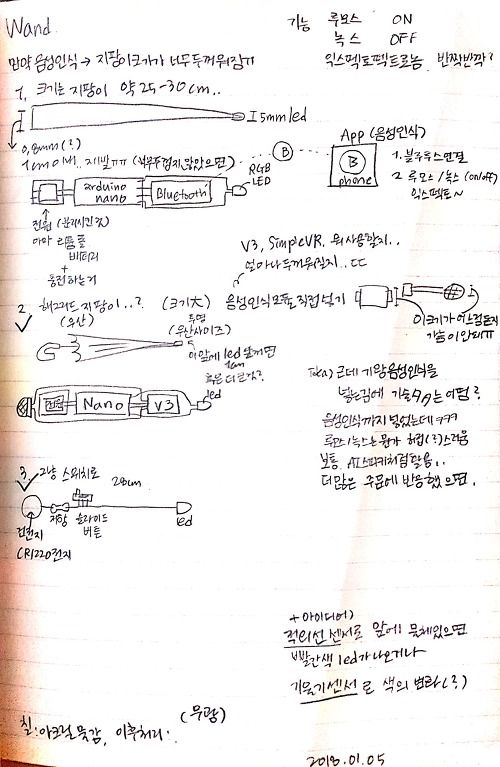 Wand
기능 루모스 ON
녹스 OFF
익스펙토펙트로눔 반짝반짝?
만약 음성인식 → 지팡이크기가 너무두꺼워질까
1, 크기는 지팡이 약 25-30cm..
5mm led
0,8mm(?)
1cm 이내.. 제발ㅠㅠ (너무두껍지 않았으면)
B
App (음성인식)
B
phone
1. 블루투스연결
2 루모스/녹스 (on/off)
익스펙토~
RGB
LED
arduino
nano
Bluetooth
전원 (분리시킨것)
아마 리튬폴
배터리
+
충전하는거
V3, SimpleVR, 뭐사용할지..
얼마나두꺼워질지..ㄷㄷ
2 해그리드 지팡이..? (크기大) 음성인식모듈직접넣기
(우산)
투명
(우산사이즈)
이앞에 led 넣으면
1cm
혹은 더크게?
이크기가 어느정도일지
가늠이 안돼ㅠ
전원
Nano
V3
led
근데 기왕음성인식을
넣는김에 기능 추가는 어떰?
음성인식까지 넣었는데 ㅋㅋㅋ
루모스/녹스는뭔가 허접(?)스러움
보통 AI스피커처럼 활용..
더많은 주문에 반응했으면.
3, 그냥 스위치로
28cm
저항
슬라이드
버튼
led
건전지
CR1220전지
+ 아이디어)
적외선 센서로 앞에 물체있으면
빨간색 led가 나오게나
기울기센서로 색의 변화(?)
(무광)
칠: 아크릴물감, 이후처리.
2018.01.05